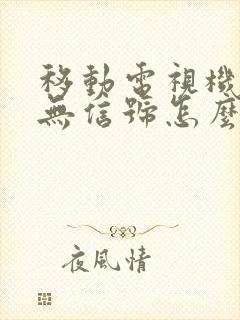 移動電視機
無信號怎麼
夜風情